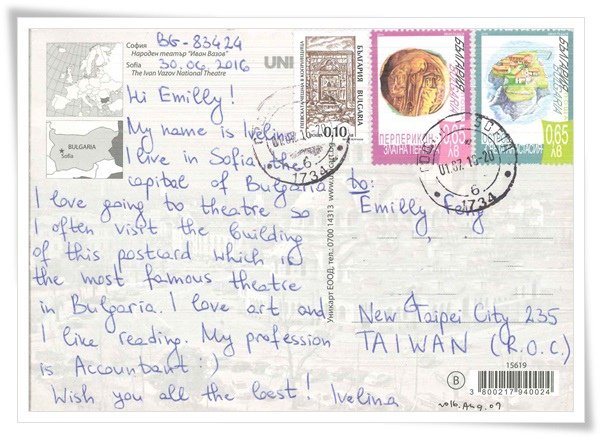 BG-83424
София
Народен театър "Иван Вазов"
30.06.2016
Sofia
The Ivan Vazov National Theatre
UNI
BULGARIA
Sofia
Hi Emilly!
My name is Ivelina
I live in Sofia the
capital of Bulgaria
I love going to theatre so
I often visit the building
of this postcard which is
the most famous theatre
in Bulgaria. I love art and
I like reading. My profession
is Accountant :)
Wish you all the best! Ivelina
Уникарт ЕООД, тел.: 0700 14313
БЪЛГАРИЯ BULGARIA
0.10
ПЕРПЕРИКОН
ЗЛАТНА
0.65
ЛВ
БЪЛГАРИЯ
0.65
ЛВ
01.07.16-20
6
1734
01.07.16-20
6
1734
to:
Emilly Feng
,
New Taipei City 235
TAIWAN (R.O.C.)
15619
B
3 800217 940024
2016.Aug.09